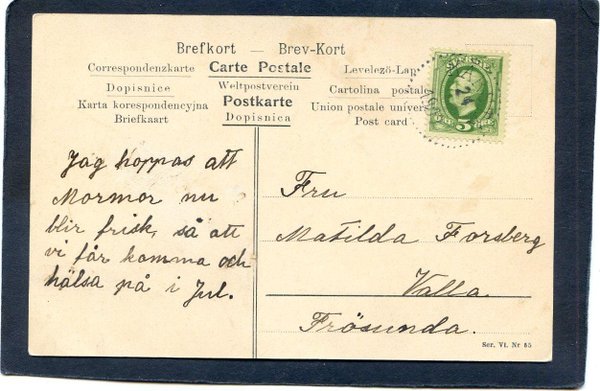 Brefkort — Brev-Kort
Correspondenzkarte Carte Postale Levelező-Lap
Dopisnice Weltpostverein Cartolina postale
Karta korespondencyjna Postkarte Union postale univers
Briefkaart Dopisnica Post card
5
Jag hoppas att
Mormor nu
blir frisk, så att
vi får komma och
hälsa på i Jul.
Fru
Matilda Forsberg
Valla.
Frösunda.
Ser. VI. Nr 55